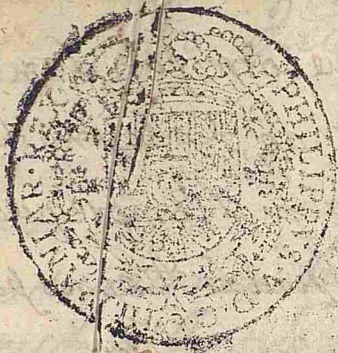 PHILIPPUS V D G HISPANIAR·REX